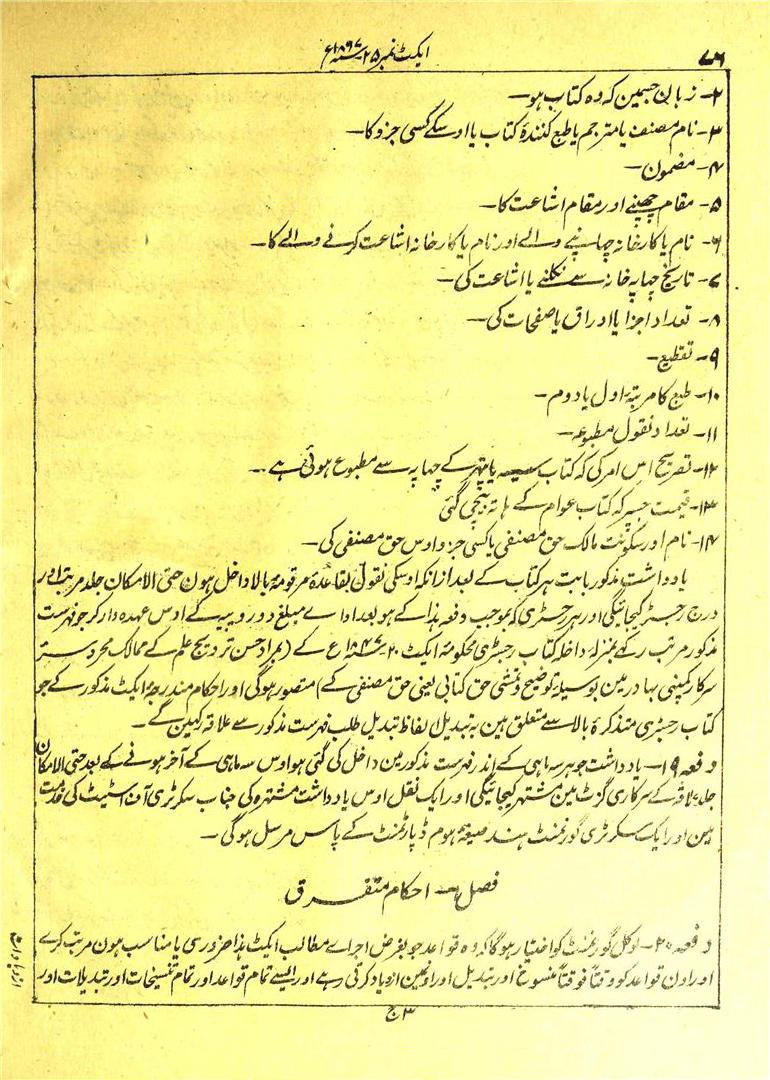 ۷۶
ایکٹ نمبر ۲۵ سنہ ۱۸۶۷ع
۲- زبان جسمین کہ وہ کتاب ہو—
۳- نام مصنف یا مترجم یا طبع کنندۂ کتاب یا اوسکے کسی جزو کا—
۴- مضمون—
۵- مقام چھپنے اور مقام اشاعت کا—
۶- نام یا کارخانہ چھاپنے والے اور نام یا کارخانہ اشاعت کرنے والے کا—
۷- تاریخ چھاپہ خانہ سے نکلنے یا اشاعت کی—
۸- تعداد اجزا یا اوراق یا صفحات کی—
۹- تقطیع—
۱۰- طبع کا مرتبۂ اول یا دوم—
۱۱- تعداد نقول مطبوعہ—
۱۲- تصریح اس امر کی کہ کتاب سیسہ یا پتھر کے چھاپہ سے مطبوع ہوئی ہے—
۱۳- قیمت جسپر کہ کتاب عوام کے ہاتہ بیچی گئی
۱۴- نام اور سکونت مالک حق مصنفی یا کسی جزو اوس حق مصنفی کی—
یادداشت مذکور بابت ہر کتاب کے بعد ازانکہ اوسکی نقول بقاعدۂ مرقومۂ بالا داخل ہون حتی الامکان جلد مرتب اور
درج رجسٹر کیجائیگی اور ہر رجسٹری کہ بموجب دفعہ ہذا کے ہو بعد اداے مبلغ دو روپیہ کے اوس عہدہ دار کو جو فہرست
مذکور مرتب رکھے بمنزلۂ داخلہ کتاب رجسٹری محکومۂ ایکٹ ۲۰ سنہ ۱۸۴۷ع کے (بمراد حسن ترویج علم کے ممالک محروسۂ
سرکار کمپنی بہادر مین بوسیلہ توضیح و تمشی حق کتابی یعنی حق مصنفی کے) متصور ہوگی اور احکام مندرجۂ ایکٹ مذکور کے جو
کتاب رجسٹری متذکرۂ بالا سے متعلق ہین بہ تبدیل الفاظ تبدیل طلب فہرست مذکور سے علاقہ رکہین گے—
دفعہ ۱۹- یادداشت جو ہر سہ ماہی کے اندر فہرست مذکور مین داخل کی گئی ہو اوس سہ ماہی کے آخر ہونے کے بعد حتی الامکان
جلد علاقہ کے سرکاری گزٹ مین مشتہر کیجائیگی اور ایک نقل اوس یادداشت مشتہرہ کی جناب سکرٹری آف اسٹیٹ کی خدمت
مین اور ایک سکرٹری گورنمنٹ ہند صیغۂ ہوم ڈپارٹمنٹ کے پاس مرسل ہوگی—
فصل ۶— احکام متفرق
دفعہ ۲۰- لوکل گورنمنٹ کو اختیار ہوگا کہ وہ قواعد جو بغرض اجراے مطالب ایکٹ ہذا ضروری یا مناسب ہون مرتب کرے
اور اون قواعد کو وقتاً فوقتاً منسوخ اور تبدیل اور اونمین ازدیاد کرتی رہے اور ایسے تمام قواعد اور تمام تنسیخات اور تبدیلات اور
۳ ج